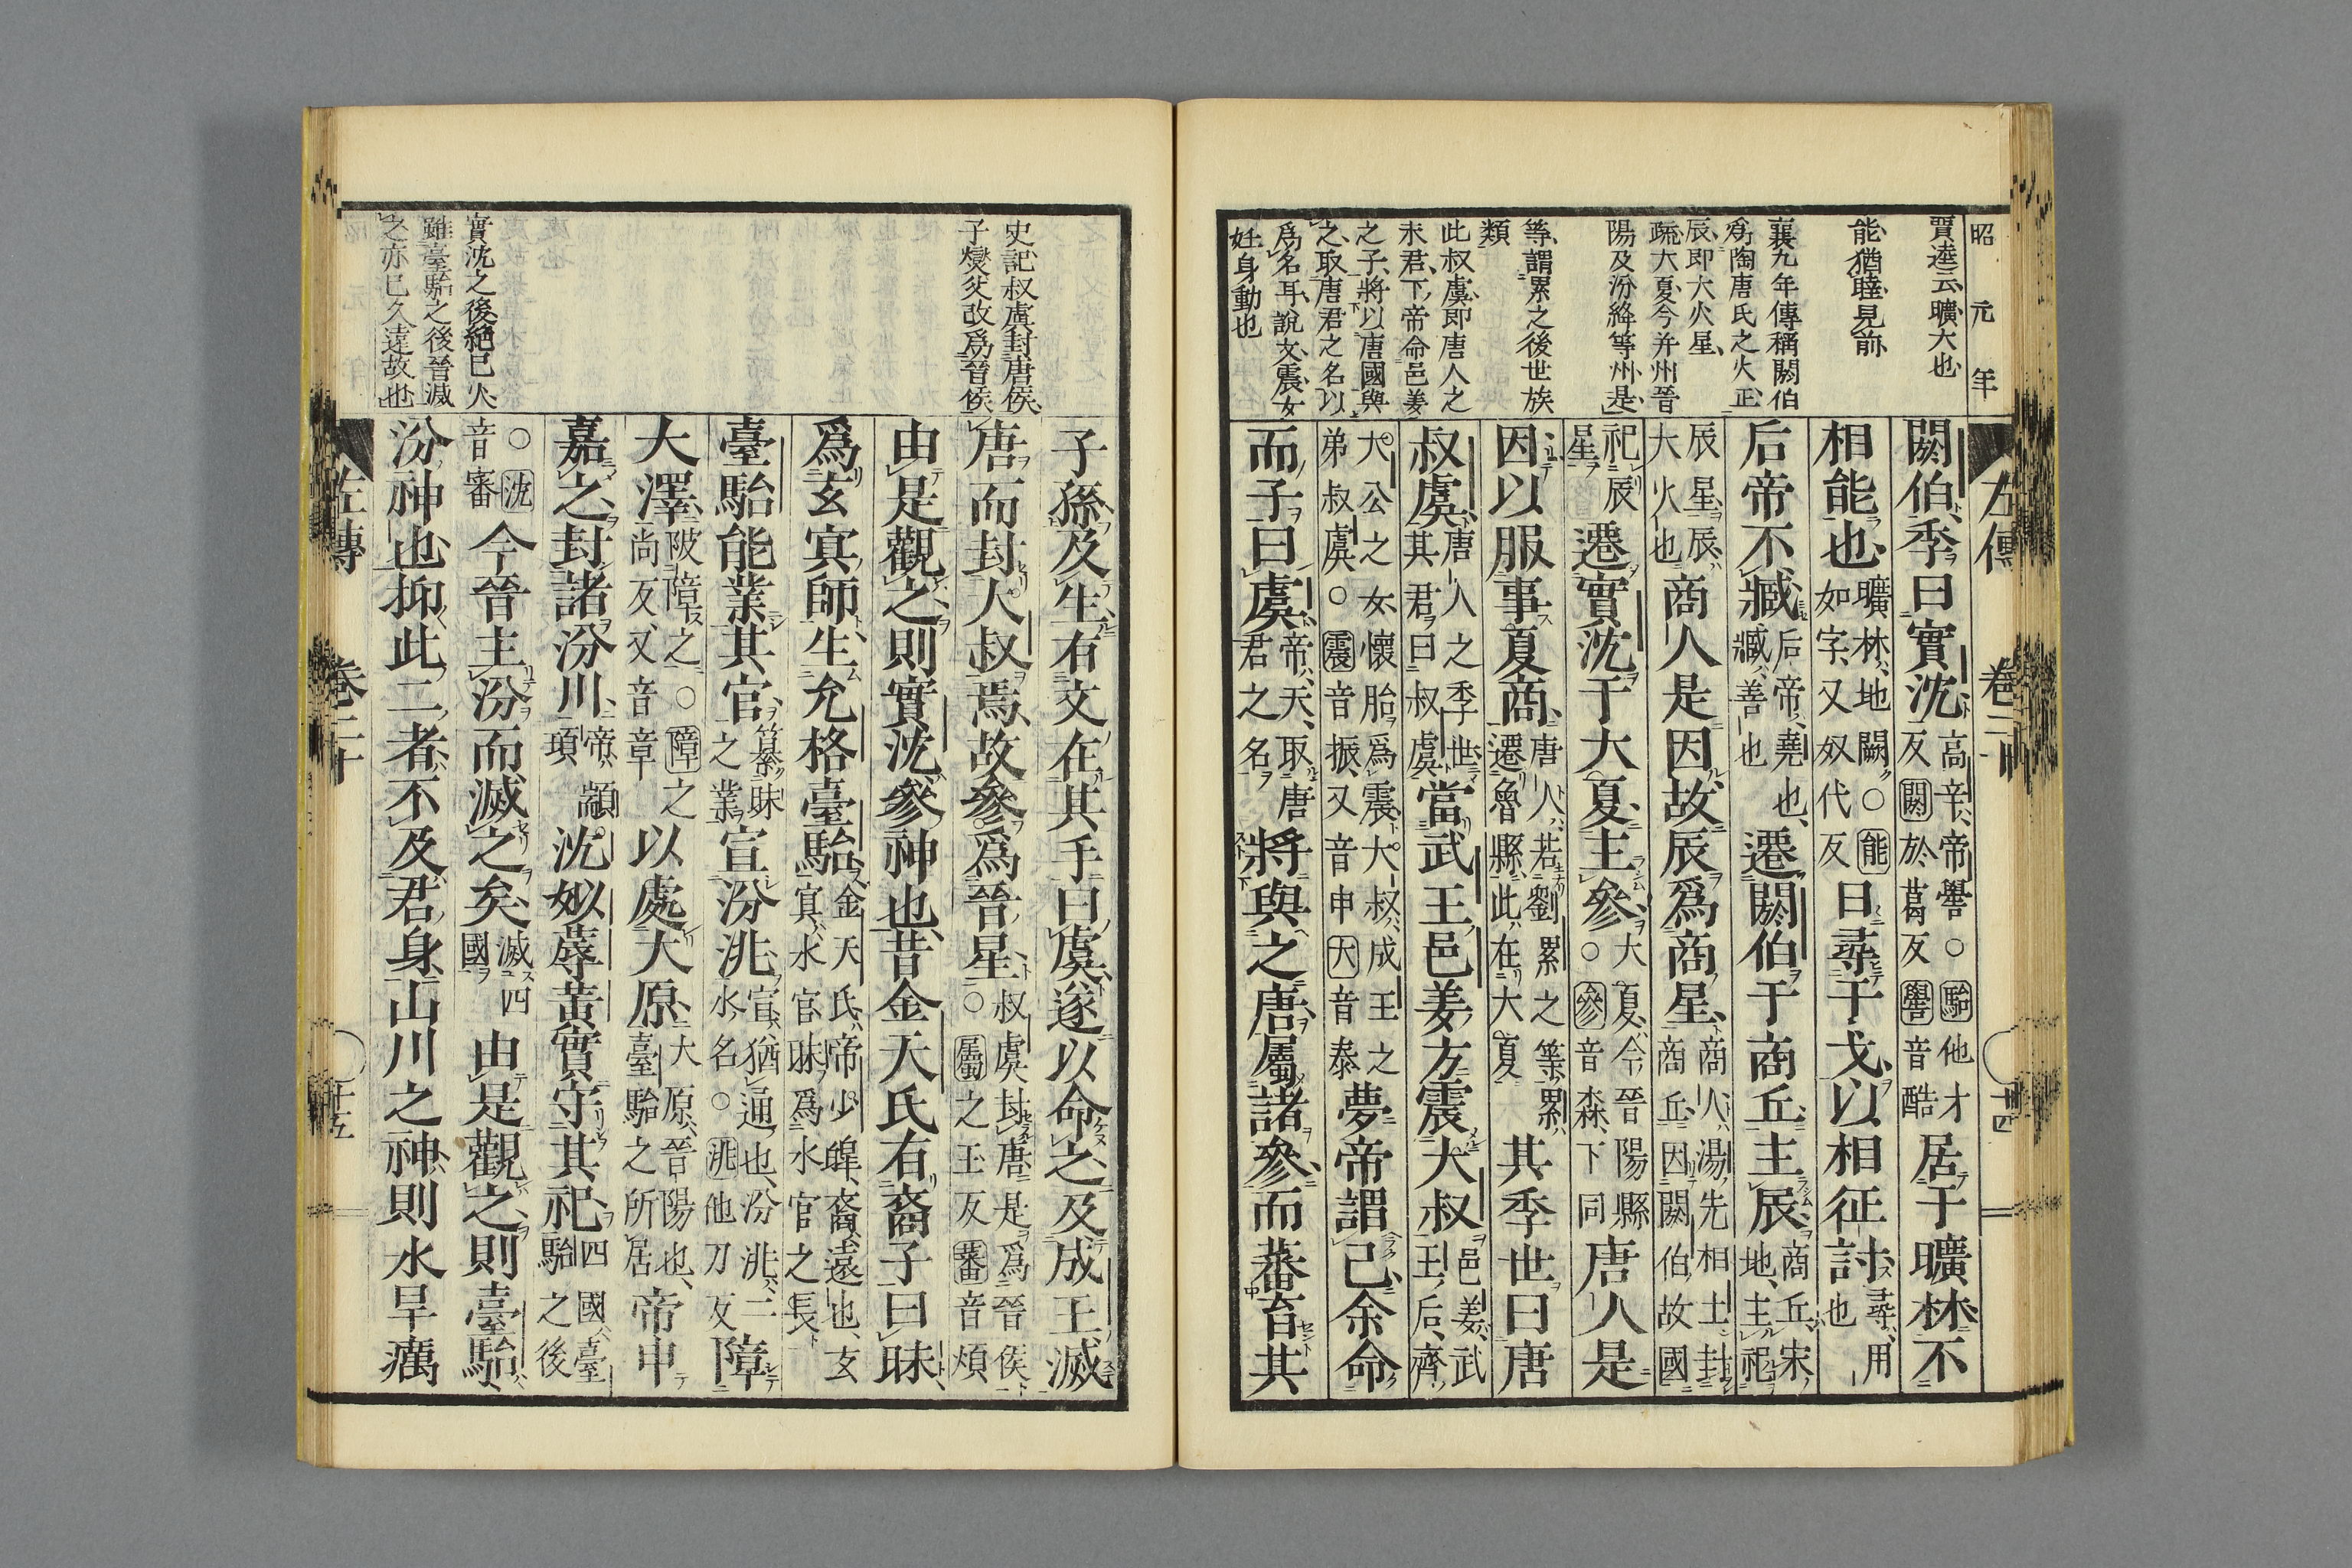 昭元年
賈逵云曠大也
能猶睦見前
襄九年傳稱閼伯
爲陶唐氏之火正
辰即大火星
疏大夏今并州晉
陽及汾絳等州是
等謂累之後世族
類
此叔虞即唐人之
末君下帝命邑姜
之子將以唐國與
之取唐君之名以
爲名耳說文震女
妊身動也
左傳 卷二十 十四
閼伯季曰實沈高辛帝嚳○駘他才反閼於葛反嚳音酷居于曠林不
相能也曠林地闕○能如字又奴代反日尋干戈以相征討尋用也
后帝不臧后帝堯也臧善也遷閼伯于商丘主辰商丘宋地主祀
辰星辰大火也商人是因故辰爲商星商人湯先相土封商丘因閼伯故國
祀辰星遷實沈于大夏主參大夏今晉陽縣○參音森下同唐人是
因以服事夏商唐人若劉累之等累遷魯縣此在大夏其季世曰唐
叔虞唐人之季世其君曰叔虞當武王邑姜方震大叔邑姜武王后齊
大公之女懷胎爲震大叔成王之弟叔虞○震音振又音申大音泰夢帝謂己余命
而子曰虞帝天取唐君之名將與之唐屬諸參而蕃育其
史記叔虞封唐侯
子燮父改爲晉侯
實沈之後絕已久
雖臺駘之後晉滅
之亦已久遠故也
子孫及生有文在其手曰虞遂以命之及成王滅
唐而封大叔焉故參爲晉星叔虞封唐是爲晉侯○屬之玉反蕃音煩
由是觀之則實沈參神也昔金天氏有裔子曰昧
爲玄冥師生允格臺駘金天氏帝少皞裔遠也玄冥水官昧爲水官之長
臺駘能業其官纂昧之業宣汾洮宣猶通也汾洮二水名○洮他刀反障
大澤陂障之○障之尚反又音章以處大原大原晉陽也臺駘之所居帝申
嘉之封諸汾川帝顓頊沈姒蓐黃實守其祀四國臺駘之後
○沈音審今晉主汾而滅之矣滅四國由是觀之則臺駘
汾神也抑此二者不及君身山川之神則水旱癘
左傳 卷二十 十五